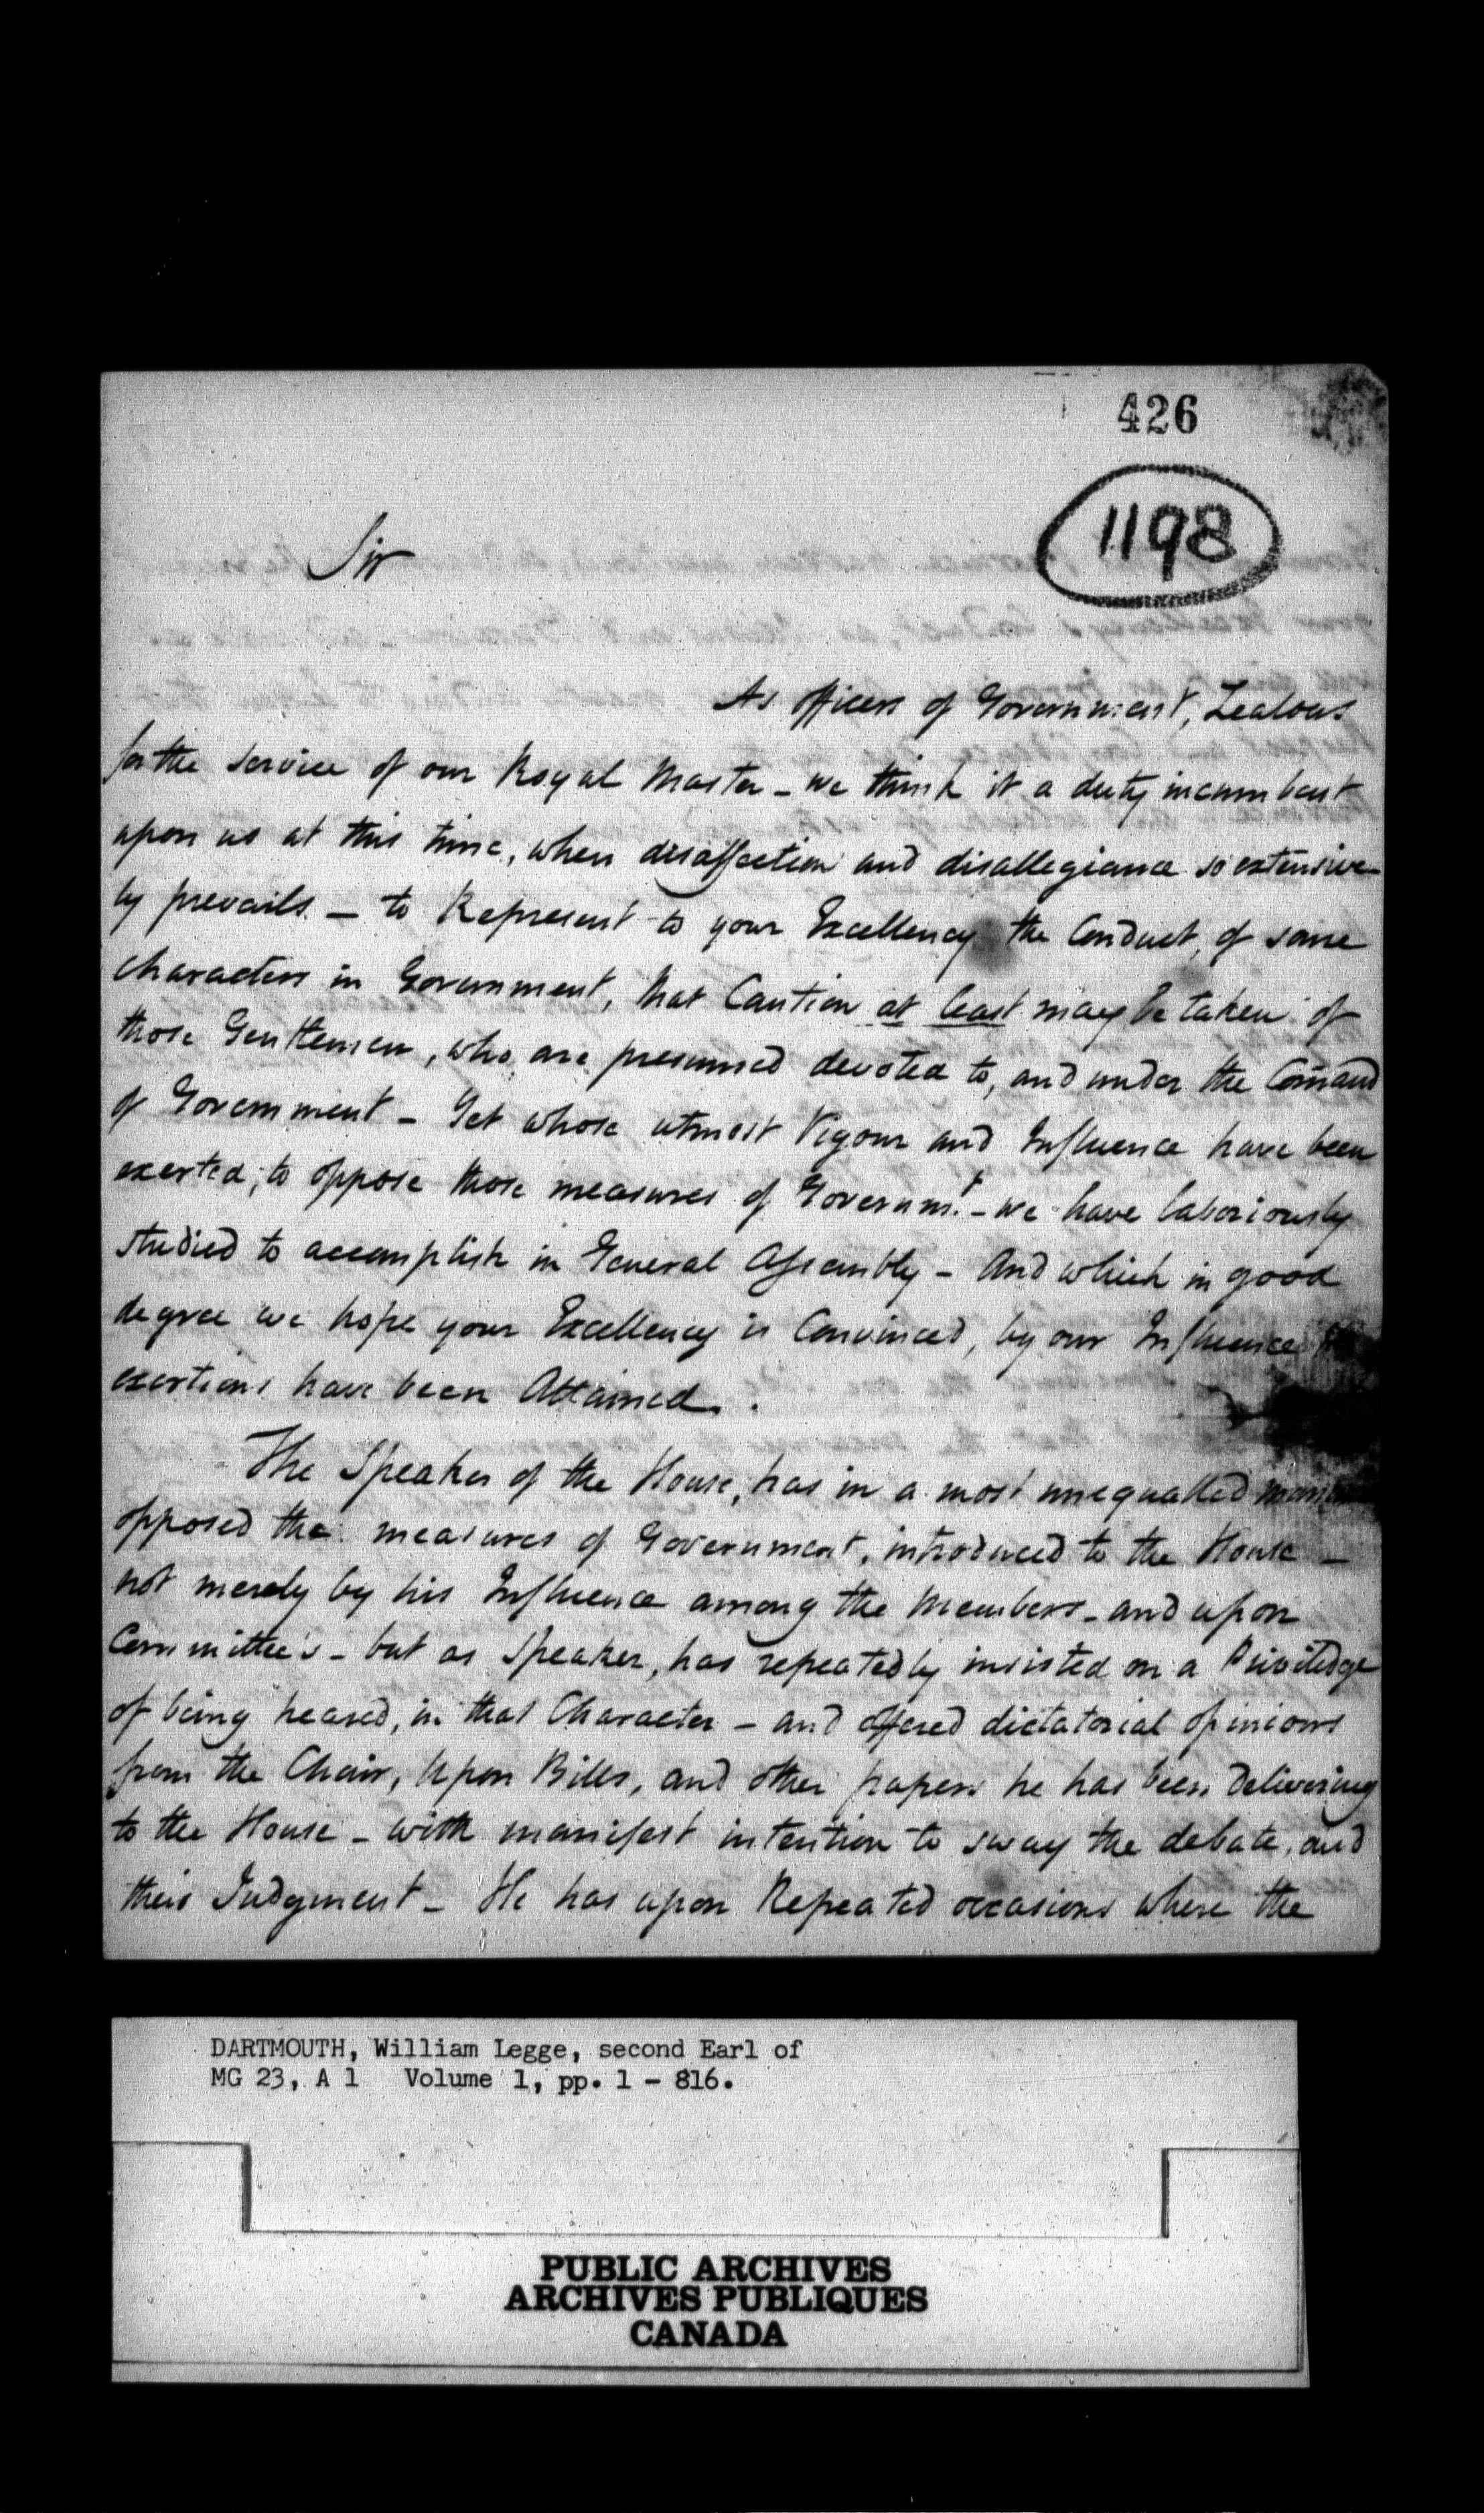 426
1198
Sir
As officers of Government, Zealous
for the Service of our Royal Master - we think it a duty incumbent
upon us at this time, when disaffection and disallegiance so extensive-
ly prevails - to Represent to your Excellency the Conduct, of some
characters in Government, that Caution at least may be taken of
those Gentlemen, who are presumed devoted to, and under the Comand
of Government - Yet whose utmost Vigour and Influence have been
exerted, to oppose those measures of Governmt. - we have laboriously
studied to accomplish in General Assembly - And which in good
degree we hope your Excellency is Convinced, by our Influence
exertions have been Attained.
The Speaker of the House, has in a most unequalled
opposed the measures of Government, introduced to the House -
not merely by his Influence among the Members - and upon
Committee's - but as Speaker, has repeatedly insisted on a Priviledge
of being heared, in that Character - and offered dictatorial opinions
from the Chair, Upon Bills, and other papers he has been delivering
to the House - with manifest intention to sway the debate, and
their Judgment - He has upon Repeated occasions where the
DARTMOUTH, William Legge, second Earl of
MG 23, A 1 Volume 1, pp. 1 - 816.
PUBLIC ARCHIVES
ARCHIVES PUBLIQUES
CANADA